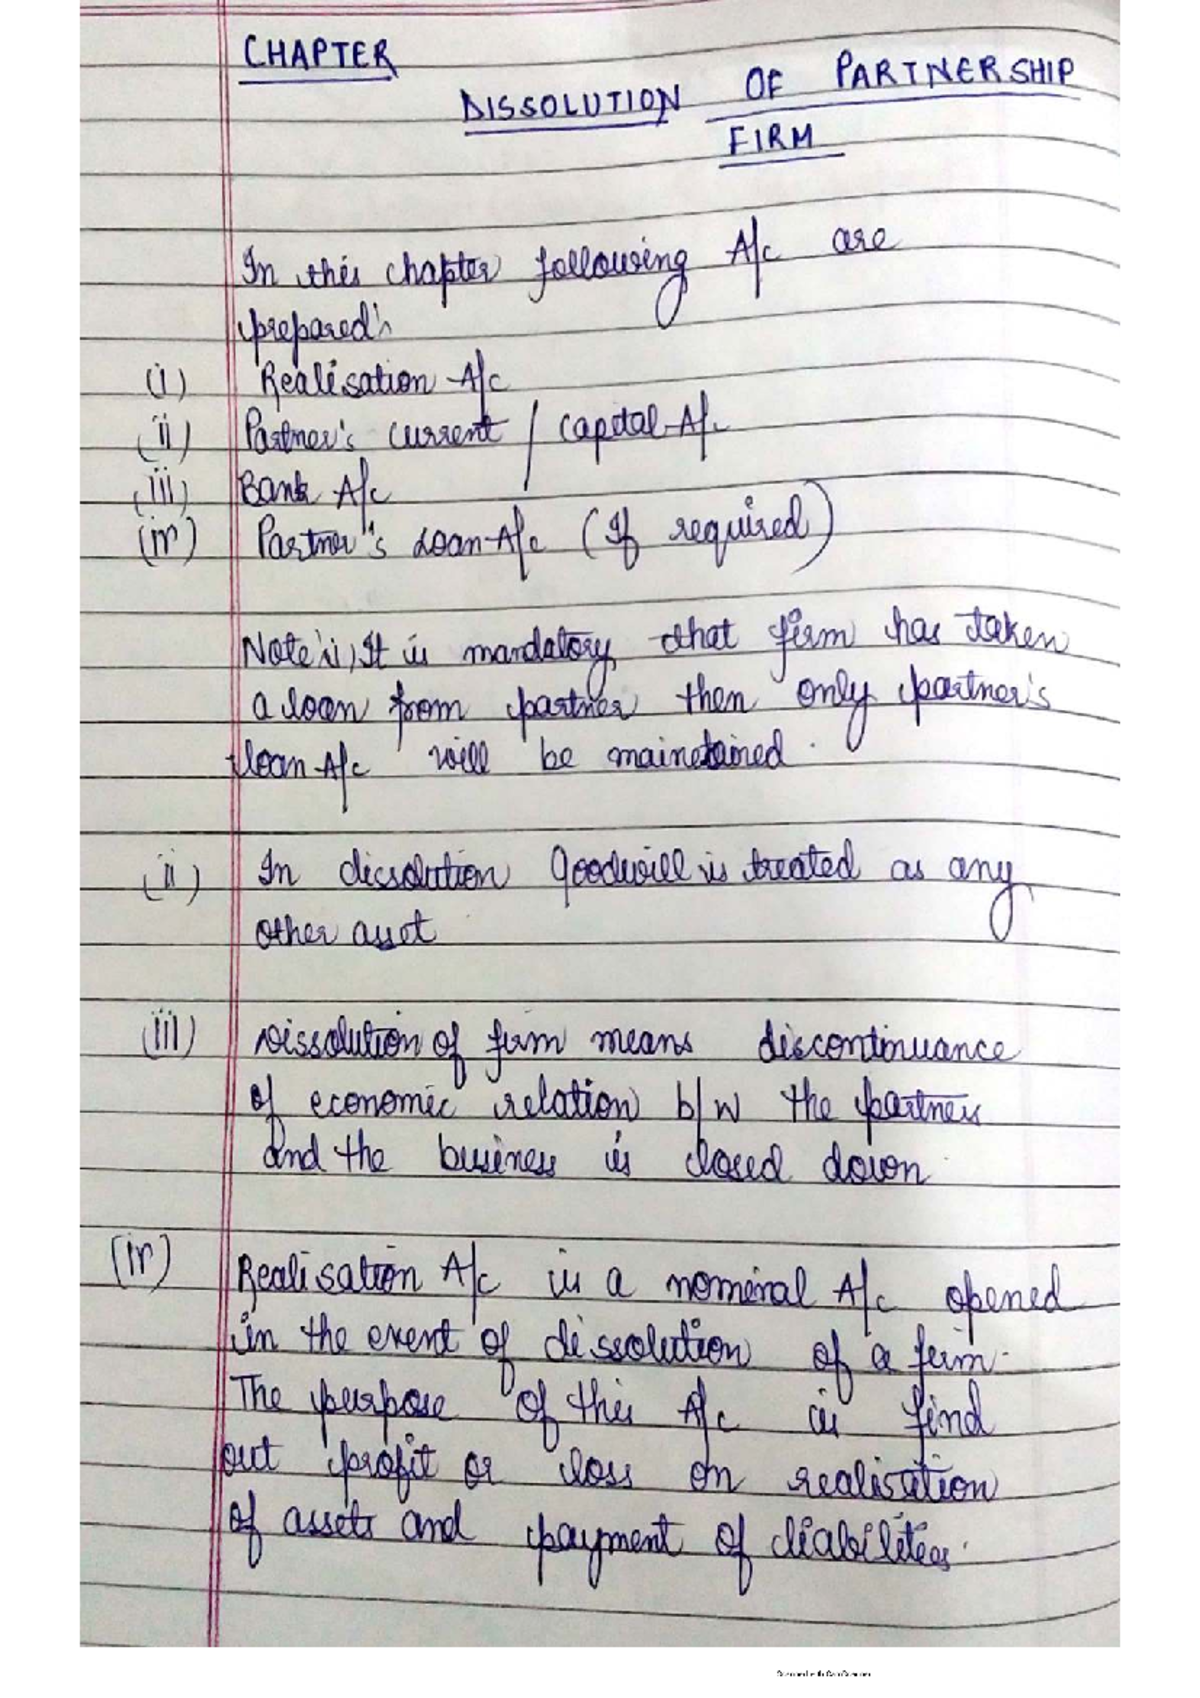 CHAPTER
DISSOLUTION OF PARTNERSHIP
FIRM
In this chapter following A/c are
prepared:
(i) Realisation A/c
(ii) Partner's current / capital A/c
(iii) Bank A/c
(iv) Partner's Loan A/c (If required)
Note: (i) It is mandatory that firm has taken
a loan from partner then only partner's
loan A/c will be maintained.
(ii) In dissolution Goodwill is treated as any
other asset
(iii) Dissolution of firm means discontinuance
of economic relation b/w the partners
and the business is closed down.
(iv) Realisation A/c is a nominal A/c opened
in the event of dissolution of a firm.
The purpose of this A/c is find
out profit or loss on realisation
of assets and payment of liabilities.